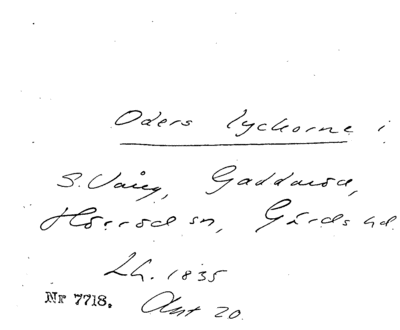 Oders lyckorne i
S. Vång, Gaddaröd,
Hörröds sn, Gärds hd.
Lh. 1835
Nr 7718. Akt 20.